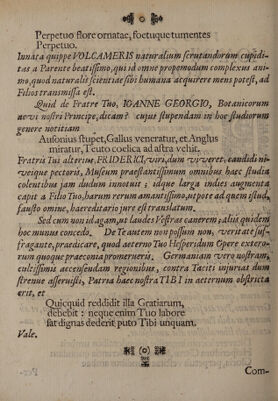 Perpetuo flore ornatae, foetuque tumentes
Perpetuo.
Innata quippe VOLCAMERIS naturalium scrutandorum cupidi-
tas a Parente beatissimo, qui id omne propemodum complexus ani-
mo, quod naturalis scientiae sibi humana acquirere mens potest, ad
Filios transmissa est.
Quid de Fratre Tuo, IOANNE GEORGIO, Botanicorum
aevi nostri Principe, dicam? cujus stupendam in hoc studiorum
genere notitiam
Ausonius stupet, Gallus veneratur, et Anglus
miratur, Teuto coelica ad astra vehit.
Fratris Tui alterius, FRIDERICI, viri, dum viveret, candidi ni-
veique pectoris, Museum praestantissimum omnibus haec studia
colentibus jam dudum innotuit; idque larga indies augmenta
capit a Filio Tuo, harum rerum amantissimo, utpote ad quem istud,
fausto omine, haereditario jure est translatum.
Sed cum non id agam, ut laudes Vestras canerem; aliis quidem
hoc munus concedo. De Te autem non possum non, veritate suf-
fragante, praedicare, quod aeterno Tuo Hesperidum Opere extero-
rum quoque praeconia promerueris. Germaniam vero nostram,
cultissimis accensendam regionibus, contra Taciti injurias dum
strenue asseruisti, Patria haec nostra TIBI in aeternum obstricta
erit, et
Quicquid reddidit illa Gratiarum,
debebit: neque enim Tuo labore
sat dignas dederit puto Tibi unquam.
Vale.
Com-